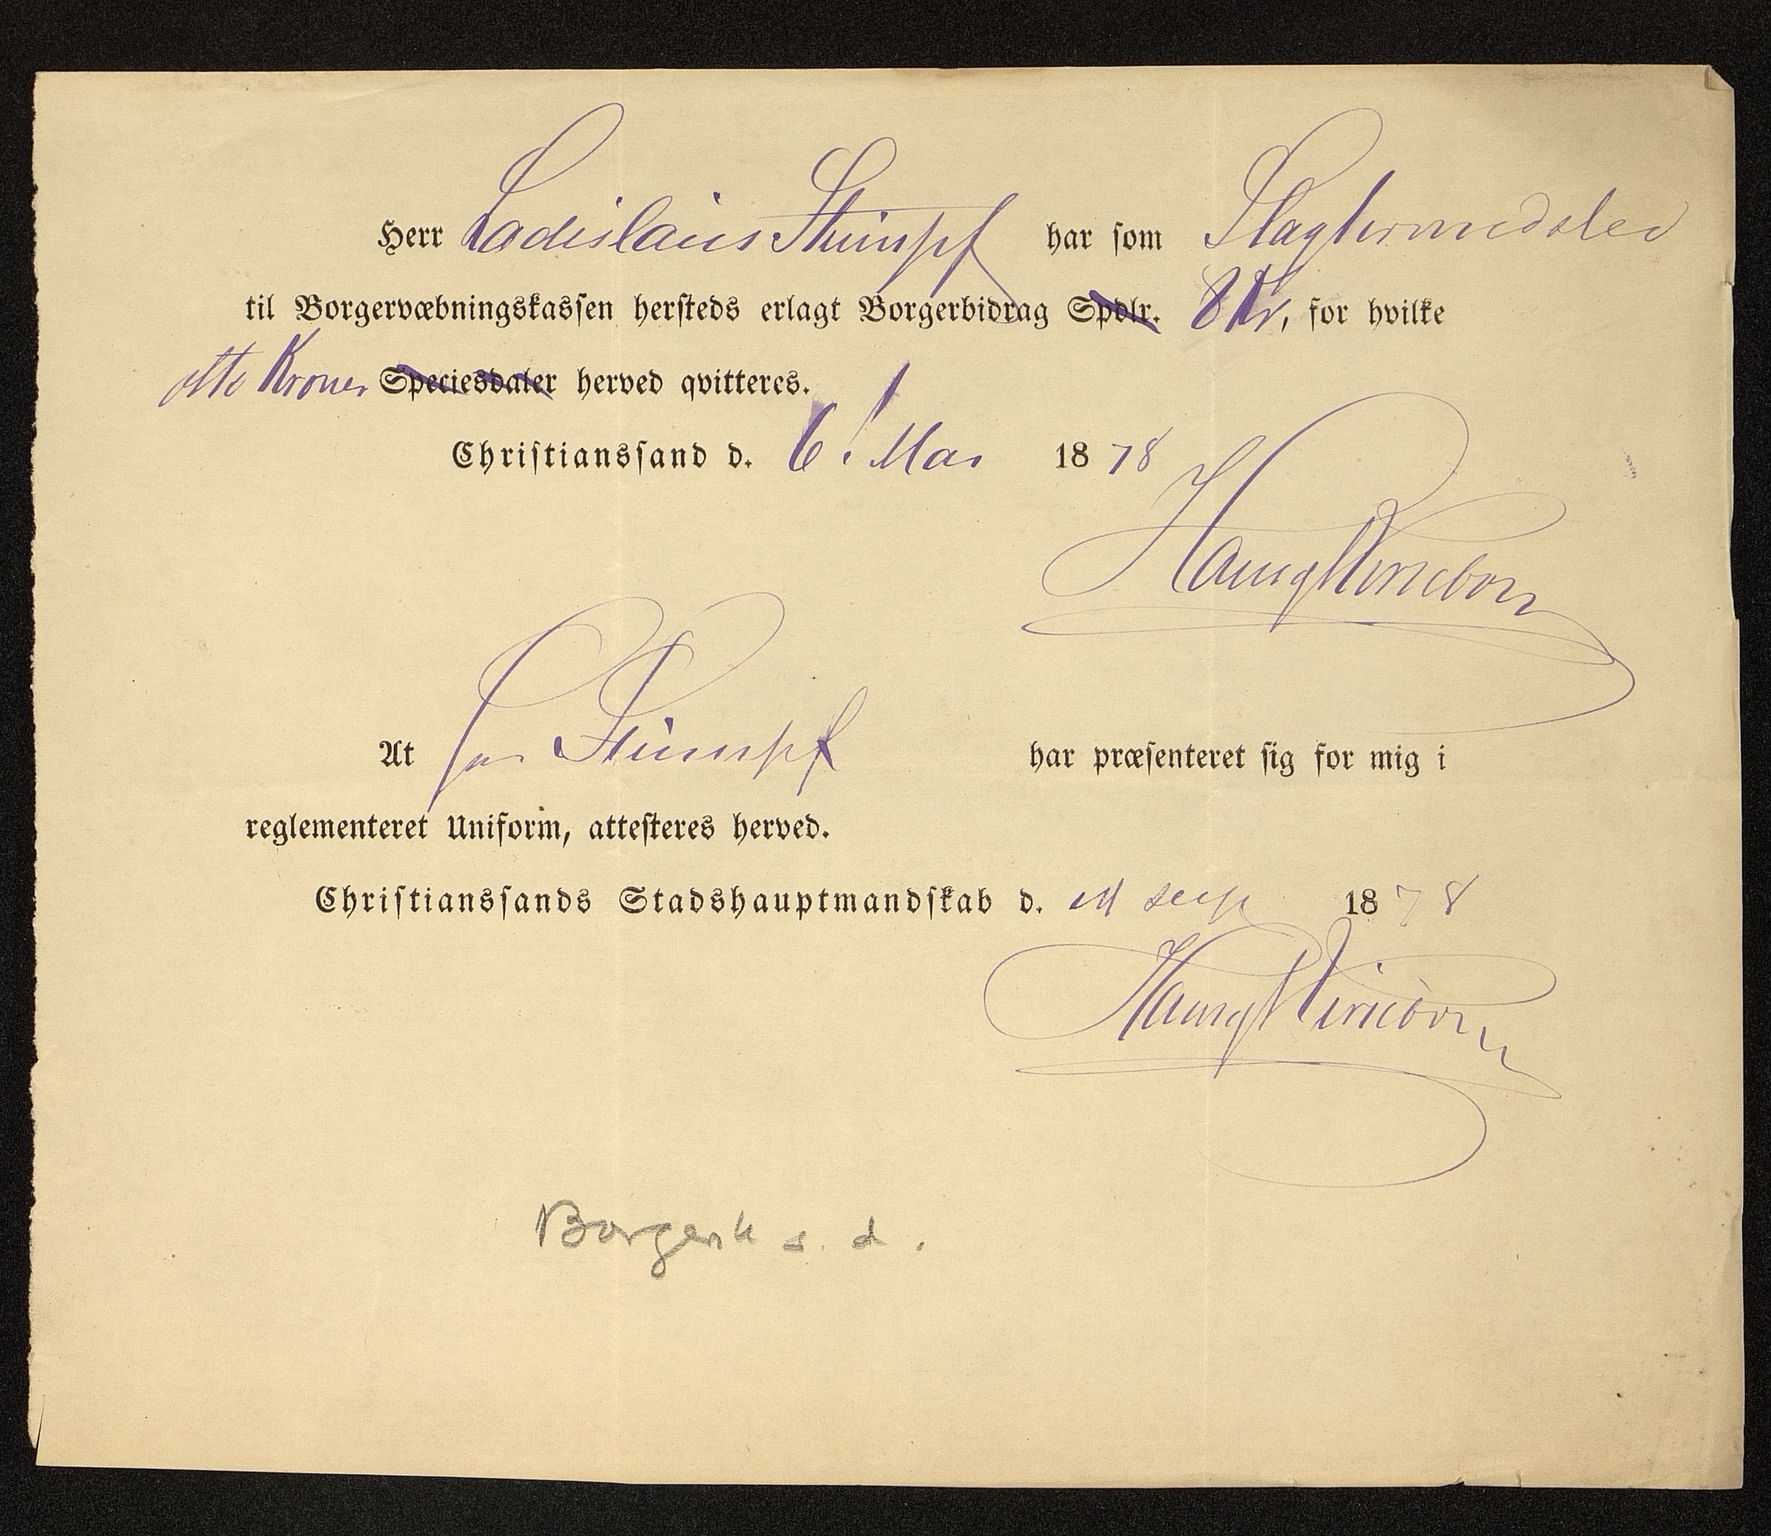 Herr Ladislaus Stumpf har som Slagtermester
til Borgervæbningskassen hersteds erlagt Borgerbidrag Spdlr. 8 Kr, for hvilke
otte Kroner Speciesdaler herved qvitteres.
Christianssand d. 6 Mai 1878
At Hr Stumpf har præsenteret sig for mig i
reglementeret Uniform, attesteres herved.
Christianssands Stadshauptmandskab d. 1878
s. d.